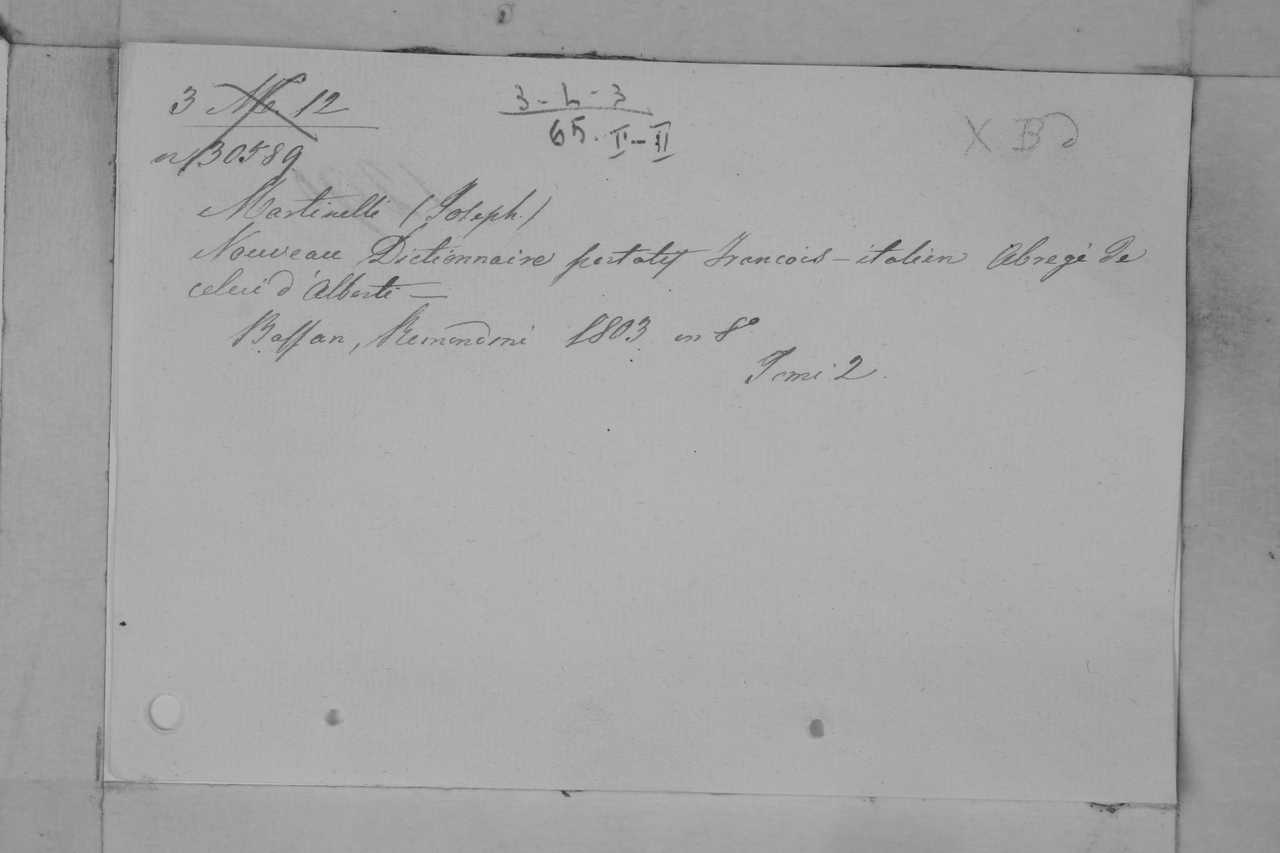 3 M. 12
n 130589
3 - L - 3
65. II - II
X B d
Martinelli (Joseph)
Nouveau Dictionnaire portatif François - italien Abregé de
celui d'Alberti —
Bassan, Remondini 1803 in 8°
Tomi 2.